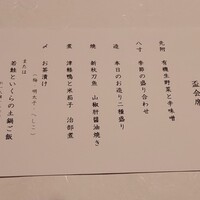 盃会席
先附 有機生野菜と辛味噌
八寸 季節の盛り合わせ
造 本日のお造り二種盛り
焼 新秋刀魚 山椒肝醤油焼き
煮 津軽鴨と米茄子 治部煮
〆 お茶漬け
または
若鮭といくらの土鍋ご飯